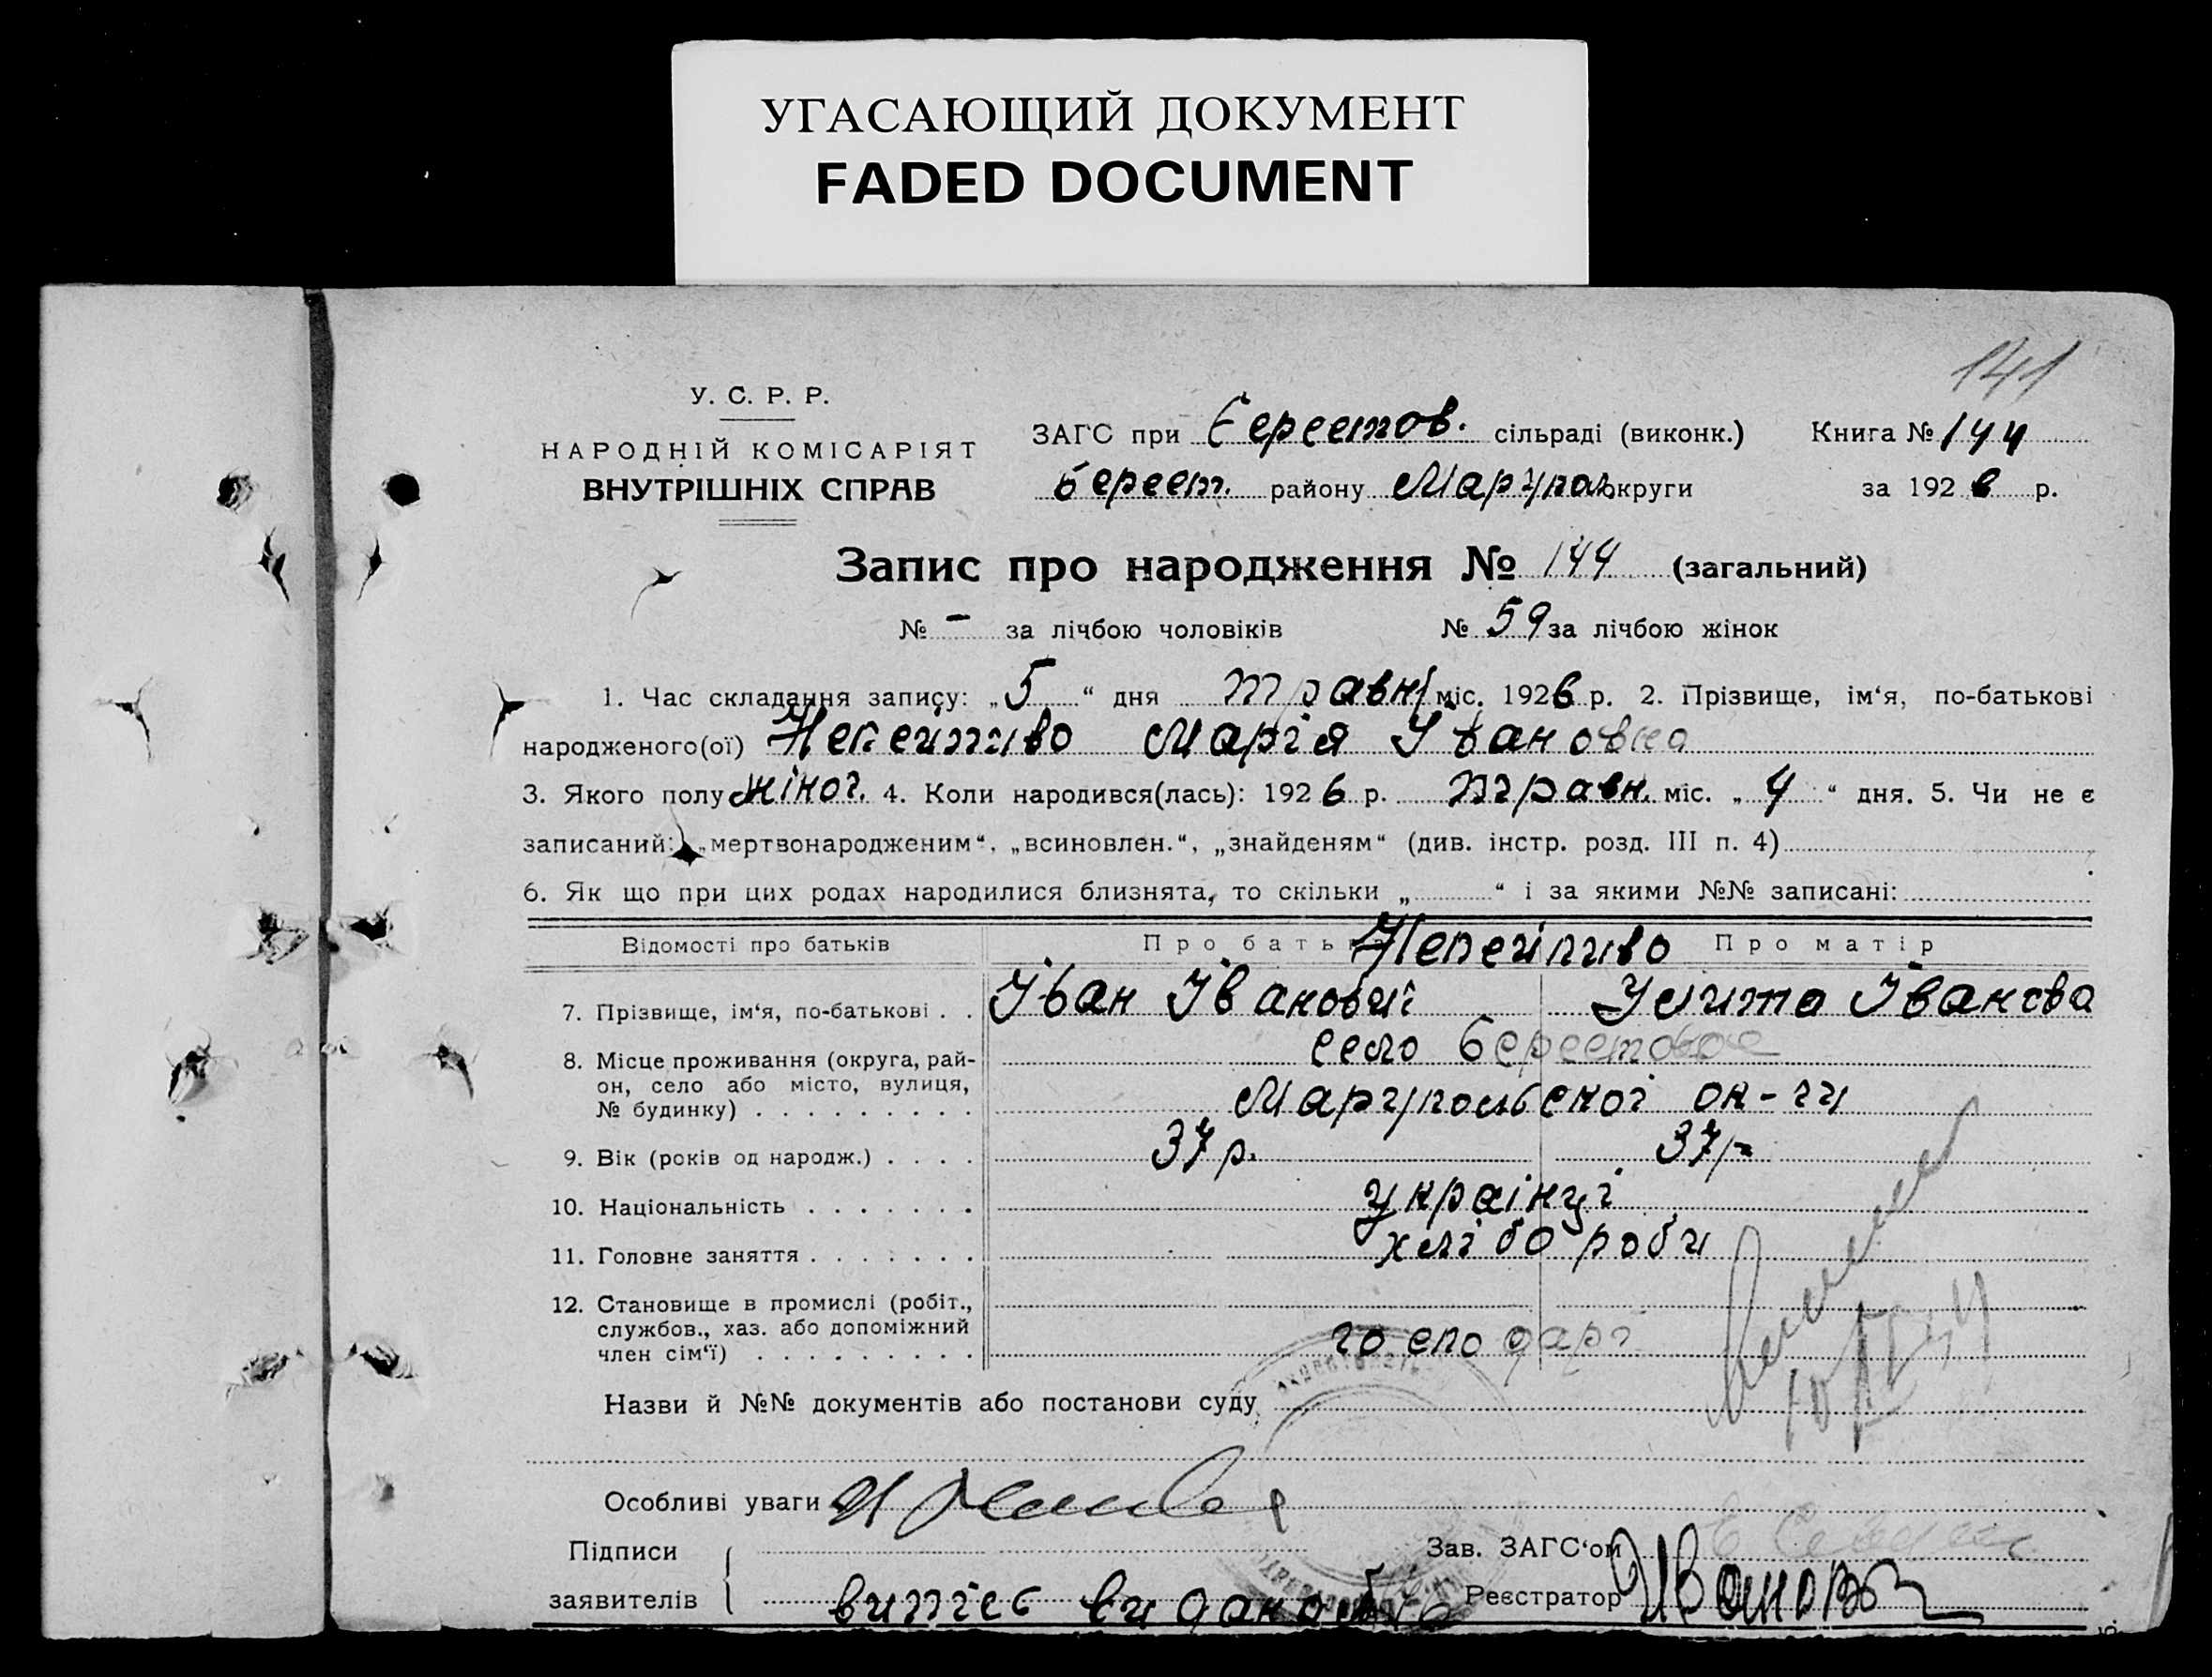 УГАСАЮЩИЙ ДОКУМЕНТ
FADED DOCUMENT
141
У. С. Р. Р.
НАРОДНІЙ КОМІСАРІЯТ
ВНУТРІШНІХ СПРАВ
ЗАГС при Берестов. сільраді (виконк.) Книга № 144
Берест. району Маріупол. округи за 1926 р.
Запис про народження № 144 (загальний)
№ - за лічбою чоловіків № 59 за лічбою жінок
1. Час складання запису: „5" дня травн. міс. 1926 р. 2. Прізвище, ім'я, по-батькові
народженого(ої) Непейпиво Марія Івановна
3. Якого полу жіноч. 4. Коли народився(лась): 1926 р. травн. міс. „4" дня. 5. Чи не є
записаний: „мертвонародженим", „всиновлен.", „знайденям" (див. інстр. розд. III п. 4)
6. Як що при цих родах народилися близнята, то скільки „ " і за якими №№ записані:
Відомості про батьків Про батьк Непейпиво Про матір
7. Прізвище, ім'я, по-батькові . . Іван Іванович Улита Іванова
8. Місце проживання (округа, рай-
он, село або місто, вулиця,
№ будинку) . . . . . . . . .
село Берестовое
Маріупольської ок-ги
9. Вік (років од народж.) . . . . 37 р. 37 р.
10. Національність . . . . . . . українці
11. Головне заняття . . . . . . . хлібороби
12. Становище в промислі (робіт.,
службов., хаз. або допоміжний
член сім'ї) . . . . . . . . .
господарі
Назви й №№ документів або постанови суду
Особливі уваги
Підписи
заявителів
Зав. ЗАГС'ом
Реєстратор Иванов